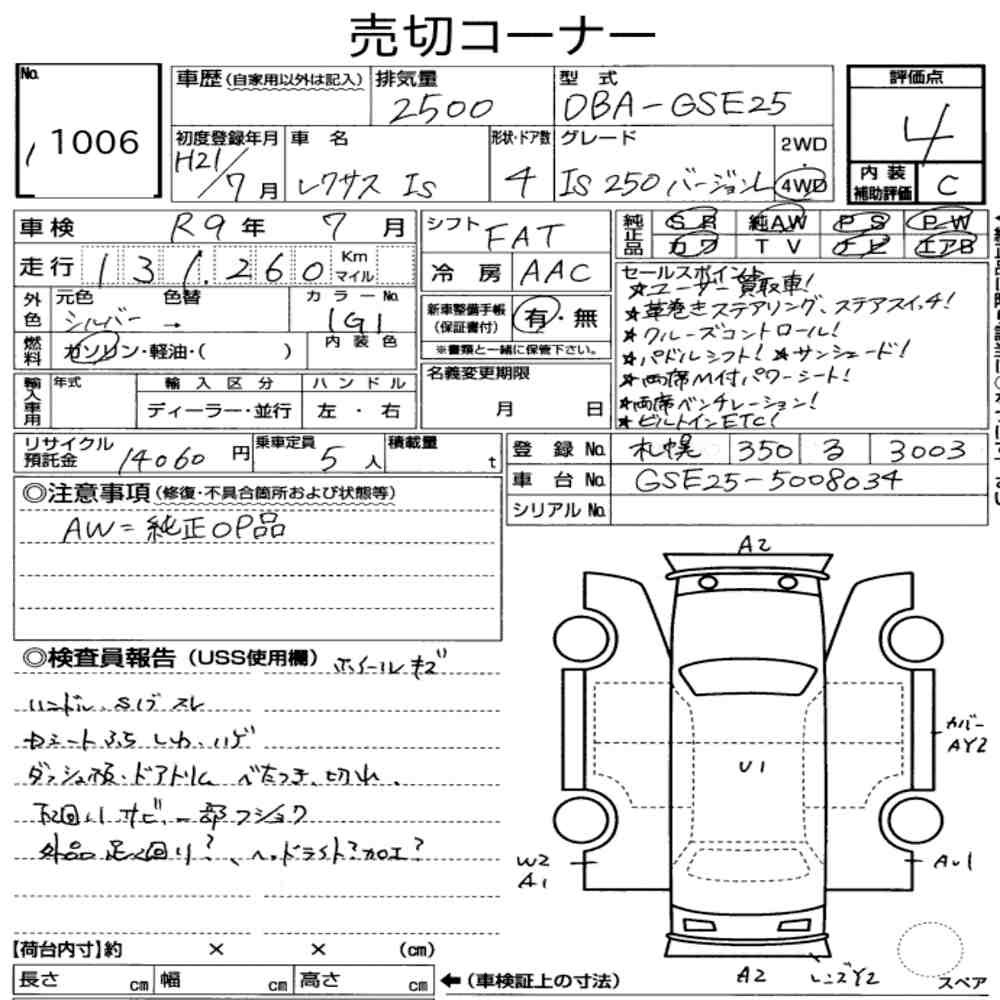 売切コーナー
No. 1006
車歴 (自家用以外は記入) 排気量 2500 型式 DBA-GSE25
評価点 4
初度登録年月 H21/7月 車名 レクサス IS 形状・ドア数 4 グレード IS 250 バージョンL 2WD・4WD
内装補助評価 C
車検 R9年 7月
走行 131,260 Km マイル
外色 元色 シルバー → 色替 カラーNo. 1G1
燃料 ガソリン・軽油・( ) 内装色
輸入車用 年式 輸入区分 ディーラー・並行 ハンドル 左・右
シフト FAT
冷房 AAC
新車整備手帳(保証書付) 有・無
※書類と一緒に保管下さい。
名義変更期限
月 日
純正品 SR 純AW PS PW
カワ TV ナビ エアB
セールスポイント
★ユーザー買取車!
★革巻きステアリング、ステアスイッチ!
★クルーズコントロール!
★パドルシフト! ★サンシェード!
★両席M付パワーシート!
★両席ベンチレーション!
★ビルトインETC!
リサイクル預託金 14060円 乗車定員 5人 積載量 t
登録No. 札幌 350 る 3003
車台No. GSE25-5008034
シリアルNo.
◎注意事項(修復・不具合箇所および状態等)
AW=純正OP品
◎検査員報告(USS使用欄) ホイールキズ
ハンドル、Sノブ スレ
シート スレ しわ、ハゲ
ダッシュ板・ドアトリム べたつき、切れ、
下回り サビ、一部フショク
外品 足く回り?、ヘッドライト?加工?
A2
U1
カバー
AY2
W2
A1
AU1
A2
レンズY2
スペア
【荷台内寸】約 × × (cm)
長さ cm 幅 cm 高さ cm
←(車検証上の寸法)